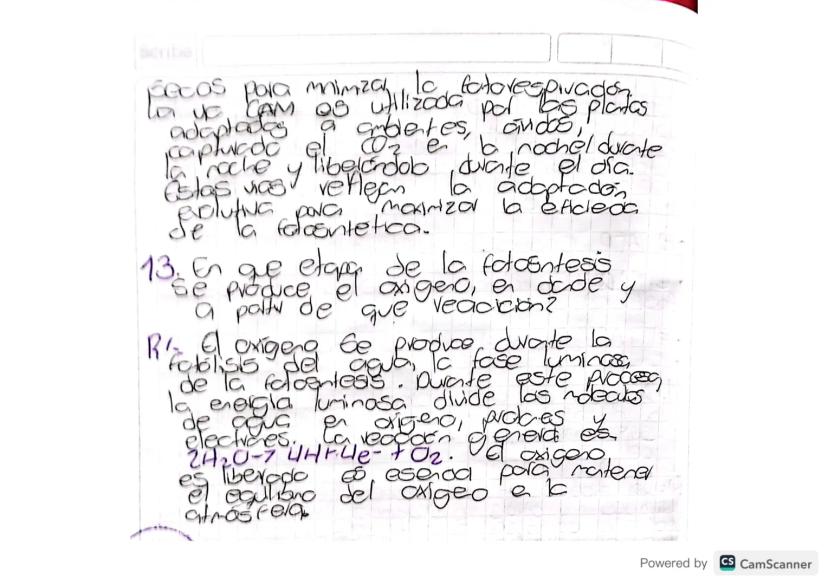 Scribe
secos para minimzar la fotorespiración.
La vc CAM es utilizada por las plantas
adaptadas a ambientes, áridos,
capturado el CO2 en la noche/durate
la noche y liberándolo durante el día.
Estas vias reflejan la adaptación,
evolutiva para maximizar la eficiecia
de la fotosintetica.
13. En que etapa de la fotosíntesis
se produce el oxígeno, en donde y
a partir de que reacición?
R/- El oxigeno se produce durante la
fotolisis del agua, la fase luminosa,
de la fotosintesis. Durate este proceso,
la energía luminosa divide las moleculas
de agua en oxígeno, protones y
electrones. La reacción general es
2H2O-> 4H++4e- + O2. El oxigeno
es liberado es esencial para mantener
el equilibrio del oxígeno en la
atmósfera.
Powered by CS CamScanner